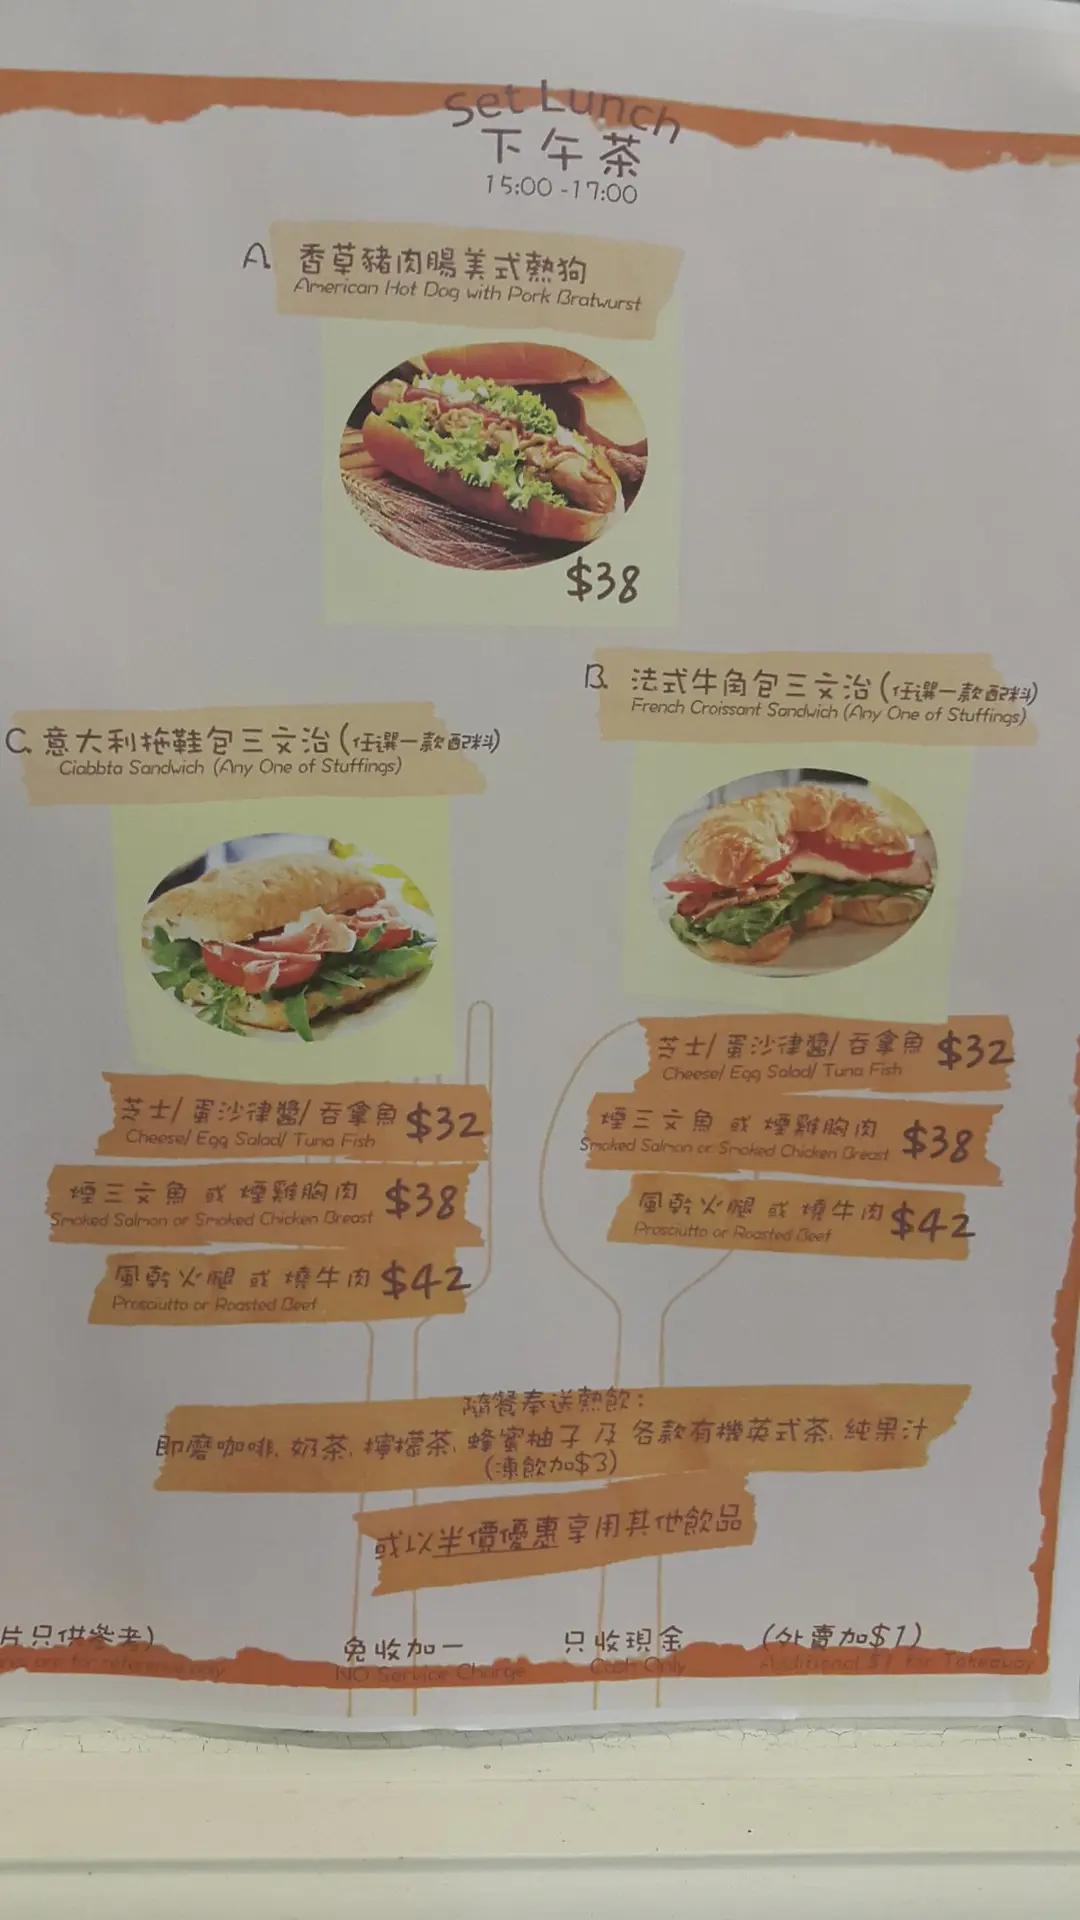 Set Lunch
下午茶
15:00 -17:00
A. 香草豬肉腸美式熱狗
American Hot Dog with Pork Bratwurst
$38
B. 法式牛角包三文治 (任選一款配料)
French Croissant Sandwich (Any One of Stuffings)
芝士/ 蛋沙律醬/ 吞拿魚 $32
Cheese/ Egg Salad/ Tuna Fish
煙三文魚 或 煙雞胸肉 $38
Smoked Salmon or Smoked Chicken Breast
風乾火腿 或 燒牛肉 $42
Prosciutto or Roasted Beef
C. 意大利拖鞋包三文治 (任選一款配料)
Ciabbta Sandwich (Any One of Stuffings)
芝士/ 蛋沙律醬/ 吞拿魚 $32
Cheese/ Egg Salad/ Tuna Fish
煙三文魚 或 煙雞胸肉 $38
Smoked Salmon or Smoked Chicken Breast
風乾火腿 或 燒牛肉 $42
Prosciutto or Roasted Beef
隨餐奉送熱飲:
即磨咖啡, 奶茶, 檸檬茶, 蜂蜜柚子 及 各款有機英式茶, 純果汁
(凍飲加$3)
或以半價優惠享用其他飲品
片只供參考) 免收加一 只收現金 (外賣加$1)
are for reference only NO Service Charge Cash Only Additional $1 for Takeaway